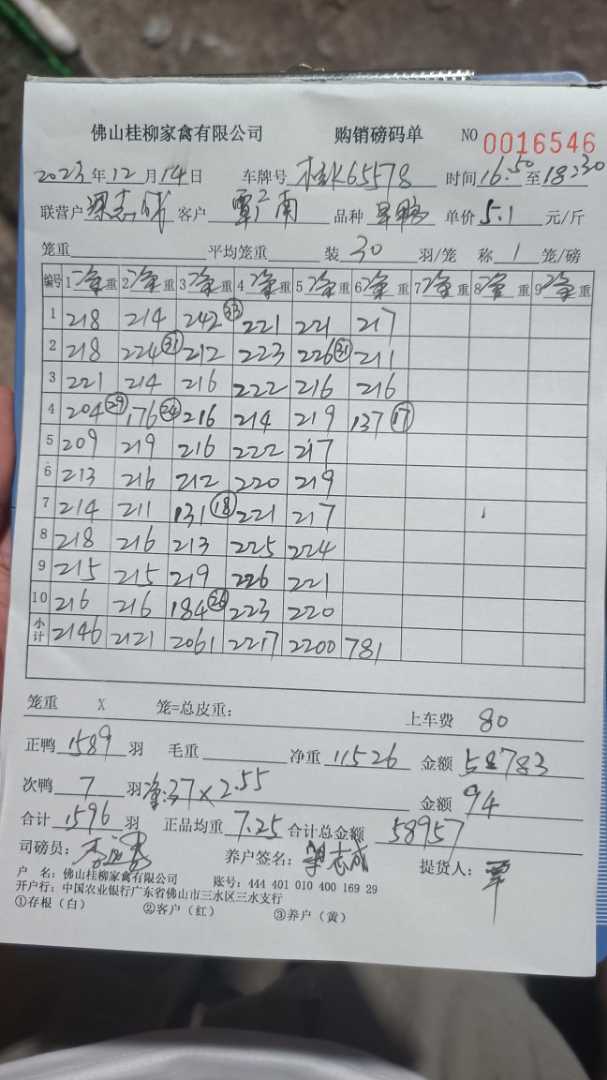 佛山桂柳家禽有限公司 购销磅码单 NO 0016546
2023年12月14日 车牌号 桂K65578 时间16:50至18:30
联营户 梁志成 客户 覃广南 品种 单价5.1元/斤
笼重 平均笼重 装30羽/笼 称1笼/磅
编号 1净重 2净重 3净重 4净重 5净重 6净重 7净重 8净重 9净重
1 218 214 242㉝ 221 221 217
2 218 224㉛ 212 223 226㉛ 211
3 221 214 216 222 216 216
4 204㉙ 176㉔ 216 214 219 137⑰
5 209 219 216 222 217
6 213 216 212 220 219
7 214 211 131⑱ 221 217
8 218 216 213 225 224
9 215 215 219 226 221
10 216 216 184㉖ 223 220
小计 2146 2121 2061 2217 2200 781
笼重 X 笼=总皮重: 上车费 80
正鸭1589羽 毛重 净重11526 金额58783
次鸭7羽 净:37×2.55 金额94
合计1596羽 正品均重7.25 合计总金额58957
司磅员: 养户签名:梁志成 提货人:覃
户 名:佛山桂柳家禽有限公司 账号:444 401 010 400 169 29
开户行:中国农业银行广东省佛山市三水区三水支行
①存根(白) ②客户(红) ③养户(黄)